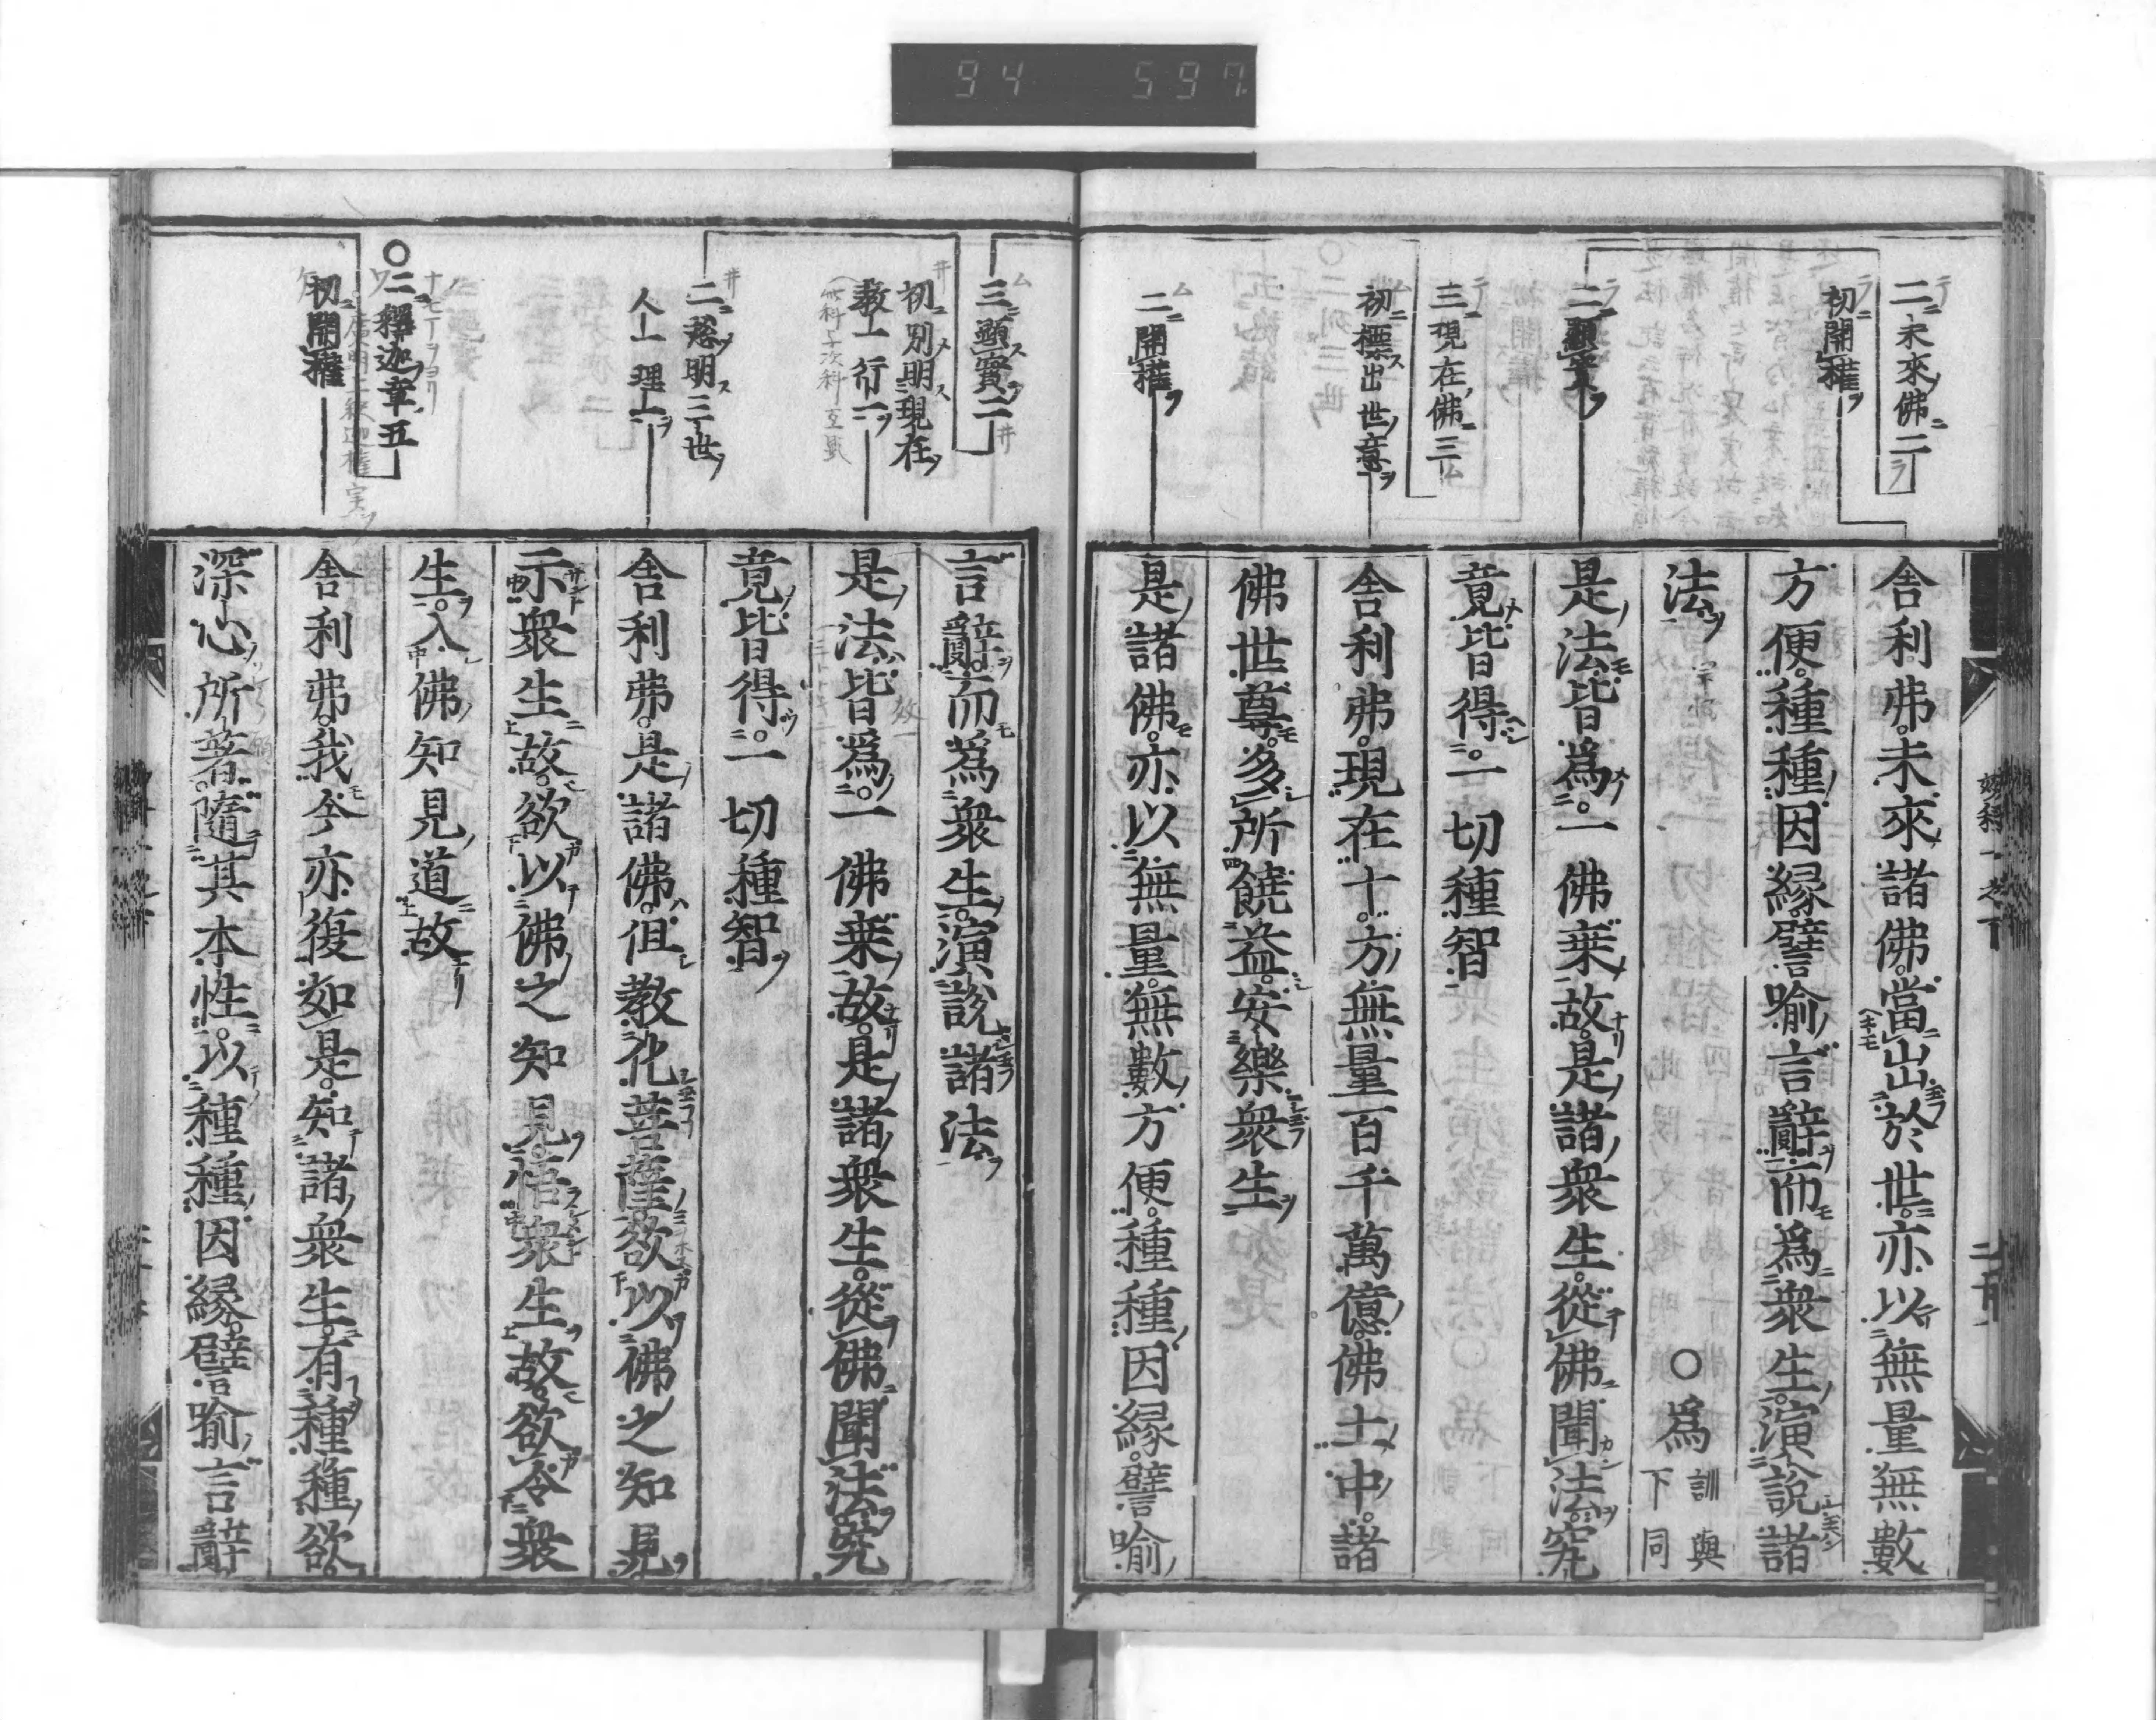 94 597
二未來佛二
初開權
二顯實
三現在佛三
初標出世意
二開權
舎利弗。未來諸佛。當出於世。亦以無量無數
方便。種種因縁譬喻言辭。而爲衆生。演說諸
法
○爲
訓與
下同
是法皆爲。一佛乗故。是諸衆生。從佛聞法。究
竟皆得。一切種智
舎利弗。現在十方。無量百千萬億。佛土中。諸
佛世尊。多所饒益。安樂衆生
是諸佛。亦以無量。無數方便。種種因縁。譬喻
三顯實二
初別明現在
教一行一
二總明三世
人一理一
○二釋迦章五
初開權
言辭。而爲衆生。演說諸法
是法皆爲。一佛乗故。是諸衆生。從佛聞法。究
竟皆得。一切種智
舎利弗。是諸佛。但教化菩薩。欲以佛之知見
示衆生故。欲以佛之知見。悟衆生故。欲令衆
生。入佛知見道故
舎利弗。我今亦復如是。知諸衆生。有種種欲。
深心所著。隨其本性。以種種因縁。譬喻言辭